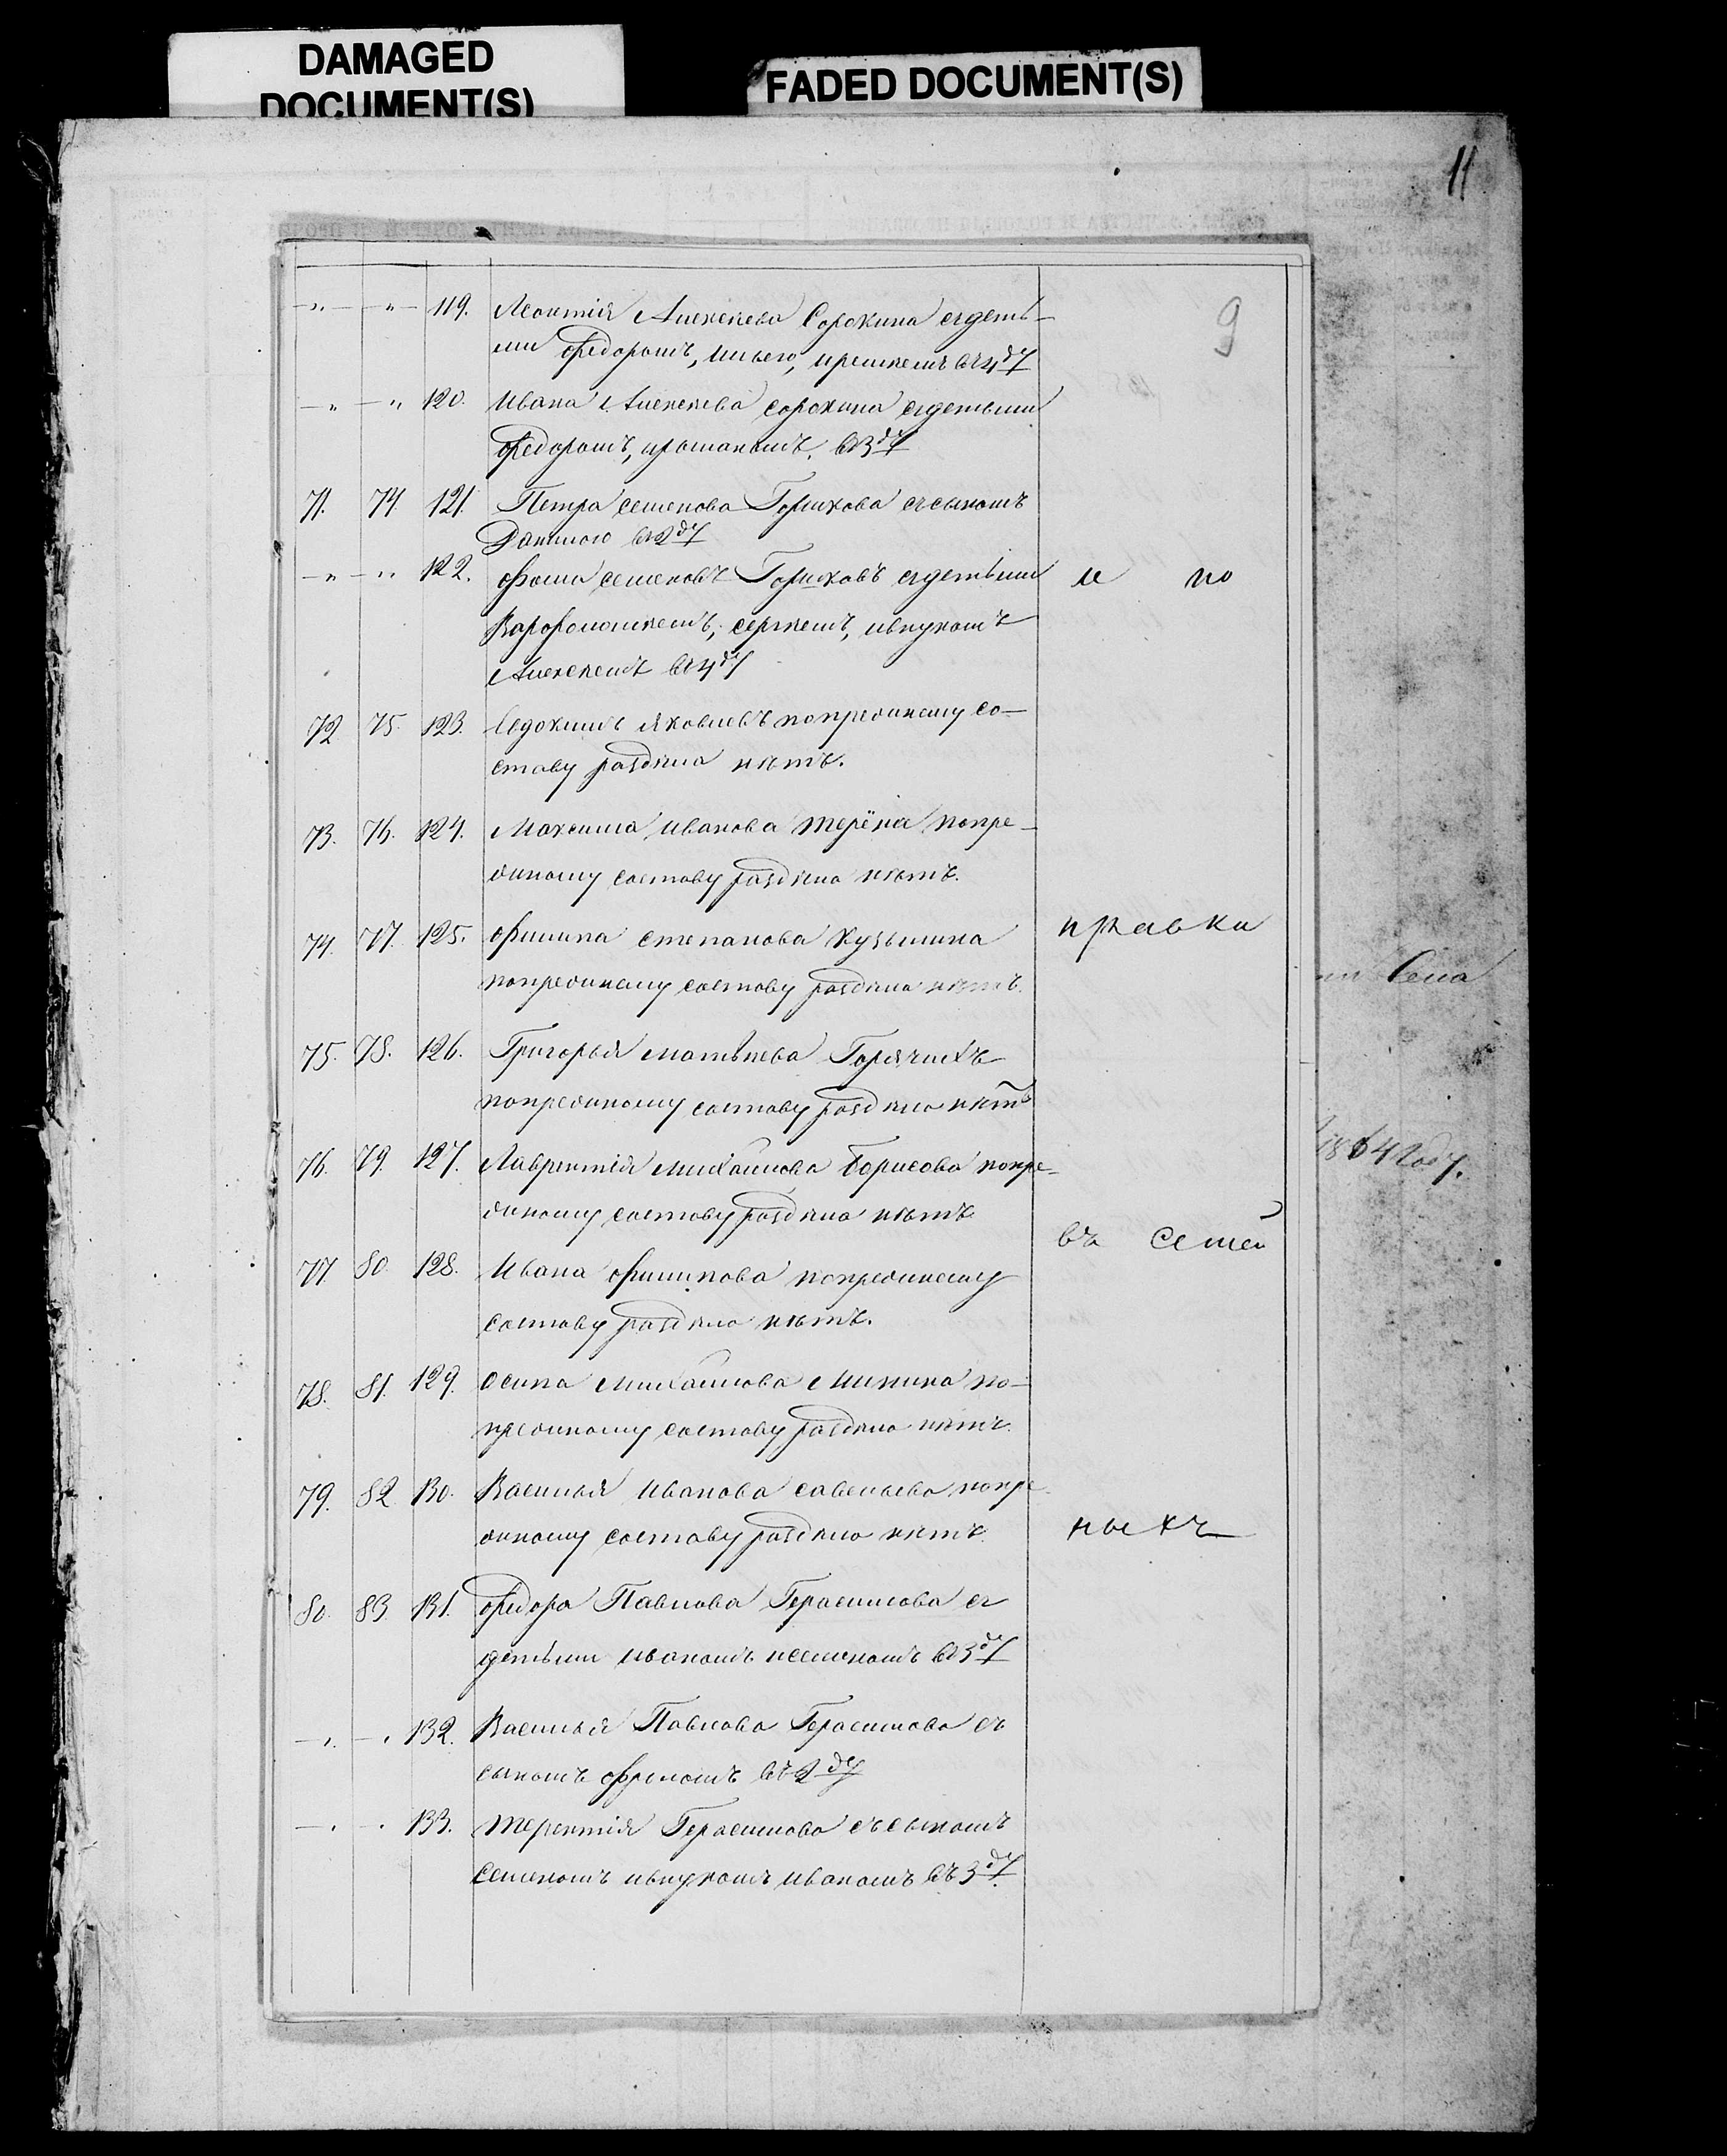 DAMAGED
DOCUMENT(S)
FADED DOCUMENT(S)
11
9
—„— —„— 119. Леонтія Алексѣева Сорокина съдеть-
ми Федоромъ, Ильею, иремѣемъ въ 4 ду
—„— —„ 120. Ивана Алексѣева сорокина съдетьми
Федоромъ, ироманомъ. въ 3 ду
71. 74. 121. Петра семенова Горшкова съсыномъ
Даниломъ въ 2 ду
—„— —„ 122. Фома семеновъ Горшковъ съдетьми и по
Варфоломѣемъ, сергѣемъ, ивнукомъ
Алексѣемъ въ 4 ду
72. 75. 123. Евдокимъ яковлевъ попрежнему со-
ставу раздѣла нѣтъ.
73. 76. 124. Максима иванова терёна попре-
жнему составу раздѣла нѣтъ.
74. 77. 125. Филипа степанова Кузьмина правки
попрежнему составу раздѣла нѣтъ.
75. 78. 126. Григорья матвѣева Горячихъ
попрежнему составу раздѣла нѣтъ
76. 79. 127. Лаврентія михайлова Борисова попре-
жнему составу раздѣла нѣтъ
въ семей
77. 80. 128. Ивана филипова попрежнему
составу раздѣла нѣтъ.
78. 81. 129. Осипа михайлова Минина по-
прежнему составу раздѣла нѣтъ.
79. 82. 130. Василья иванова савельева попре-
жнему составу раздѣла нѣтъ. ныхъ
80. 83 131. Федора Павлова Герасимова съ
детьми иваномъ исеменомъ въ 3 ду
—„ —„ 132. Василья Павлова Герасимова съ
сыномъ въ 2 ду
—„ „ 133. терентія Герасимова съсыномъ
семеномъ ивнукомъ иваномъ въ 3 ду
Села
1864 году.